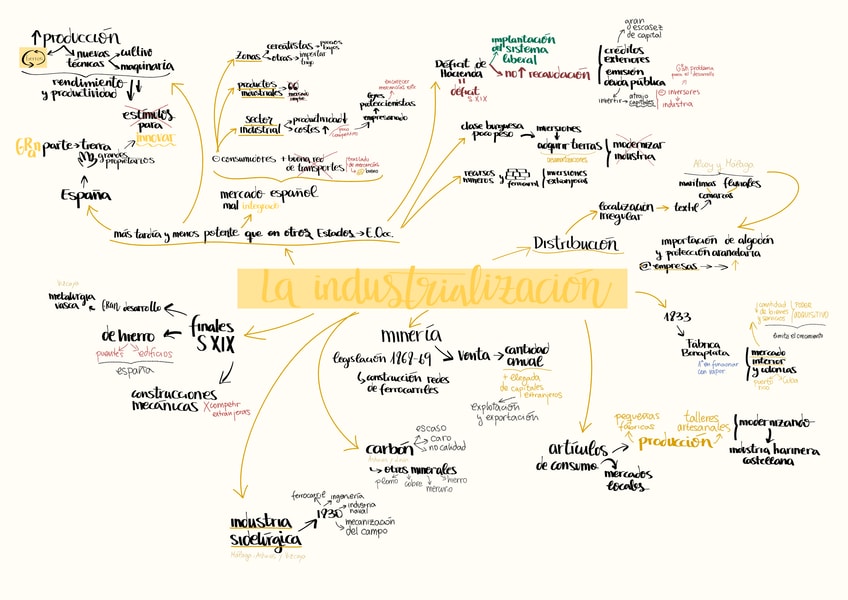 ↑ producción
tierras
nuevas técnicas
cultivo
maquinaria
rendimiento
y productividad
estímulos
para
innovar
GRan
parte → tierra
grandes
propietarios
España
más tardía y menos potente que en otros Estados → E.Occ.
zonas
cerealistas → precios
bajos
otras → importar
trigo
productos
industriales
mercado
sector
industrial
productividad
costes ↑
poco
competitivo
empresariado
leyes
proteccionistas
encarecer
⊖ consumidores + buena red
de transportes
traslado
de mercancías
mercado español
mal integrado
Déficit de
Hacienda
déficit
S XIX
implantación
del sistema
liberal
no ↑ recaudación
gran
escasez
de capital
créditos
exteriores
emisión
deuda pública
invertir → atrajo
capitales
Gran problema
para el desarrollo
⊖ inversores
industria
clase burguesa
poco peso
inversiones
adquirir tierras
desamortizaciones
modernizar
industria
recursos
mineros y
ferrocarril
inversiones
extranjeras
Distribución
localización
irregular
textil
comarcas
marítimas
fluviales
Alcoy y Málaga
importación de algodón
y protección arancelaria
empresas
La industrialización
1833
Fábrica
Bonaplata
1ª en funcionar
con vapor
mercado
interior
y colonias
puerto
rico
cuba
cantidad
de bienes
y servicios
PODER
ADQUISITIVO
limita el crecimiento
finales
S XIX
gran desarrollo
metalurgia
vasca
de hierro
puentes
edificios
españa
construcciones
mecánicas
X competir
extranjeras
minería
legislación 1868-69
construcción redes
de ferrocarriles
venta
cantidad
anual
+ llegada
de capitales
extranjeros
explotación
y exportación
carbón
escaso
caro
no calidad
otros minerales
plomo
cobre
mercurio
hierro
industria
siderúrgica
1830
ferrocarril
ingeniería
industria
naval
mecanización
del campo
artículos
de consumo
mercados
locales
producción
pequeñas
fábricas
talleres
artesanales
modernizando
industria harinera
castellana